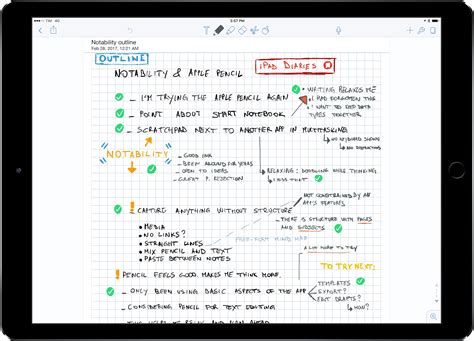 TIM 4G
3:57 PM
Notability outline
Feb 28, 2017, 12:21 AM
OUTLINE
iPAD DIARIES
NOTABILITY & APPLE PENCIL
WRITING RELAXES ME
I HAD FORGOTTEN THIS
I WANT TO KEEP DATA
TYPES TOGETHER
I'M TRYING THE APPLE PENCIL AGAIN
POINT ABOUT SMART NOTEBOOK
SCRATCHPAD NEXT TO ANOTHER APP IN MULTITASKING
NO KEYBOARD SHOWN
NO DISTRACTIONS
NOTABILITY
GOOD INK
BEEN AROUND FOR YEARS
OPEN TO IDEAS
GREAT P. REJECTION
RELAXING: DOODLING WHILE THINKING
I MISS THAT
NOT CONSTRAINED BY AN
APP'S FEATURES
! CAPTURE ANYTHING WITHOUT STRUCTURE
THERE IS STRUCTURE WITH PAGES
AND SUBJECTS
MEDIA
NO LINKS?
STRAIGHT LINES
MIX PENCIL AND TEXT
PASTE BETWEEN NOTES
FREE-FORM MIND MAP
A LOT MORE TO TRY
! PENCIL FEELS GOOD. MAKES ME THINK MORE.
TO TRY NEXT:
TEMPLATES
EXPORT?
EDIT DRAFTS?
HOW?
ONLY BEEN USING BASIC ASPECTS OF THE APP
CONSIDERING PENCIL FOR TEXT EDITING
THIS HELPS ME RELAX AND PLAN AHEAD